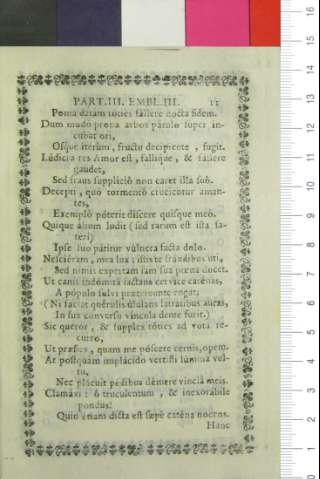 PART. III. EMBL. III. 11
Poma datam toties fallere docta fidem.
Dum modo prona arbos parulo super in-
cubat ori,
Osque iterum, fructu decipiente, fugit.
Ludicra res Amor est, fallique, & fallere
gaudet,
Sed fraus suppliciô non caret illa suô.
Decepti, quo tormentô crucientur aman-
tes,
Exemplô poteris discere quisque meô.
Quique alium ludit (sed rarum est ista fa-
teri)
Ipse suo patitur vulnera facta dolo.
Nesciéram, mea lux! istis te fraudibus uti,
Sed nimis expertam jam sua poena docet.
Ut canis indomita jactans cervice catenas,
A populo salvi praetereunte rogat;
(Ni faciat querulis ululans latratibus auras,
In sua conversô vincula dente furit.)
Sic queror, & supplex toties ad vota re-
curro,
Ut praestes, quam me poscere cernis, opem.
At postquam implacido vertisti lumina vul-
tu,
Nec placuit pedibus demere vincla meis.
Clamavi: ô truculentum, & inexorabile
pondus!
Quin etiam dicta est saepe catena nocens.
Hanc